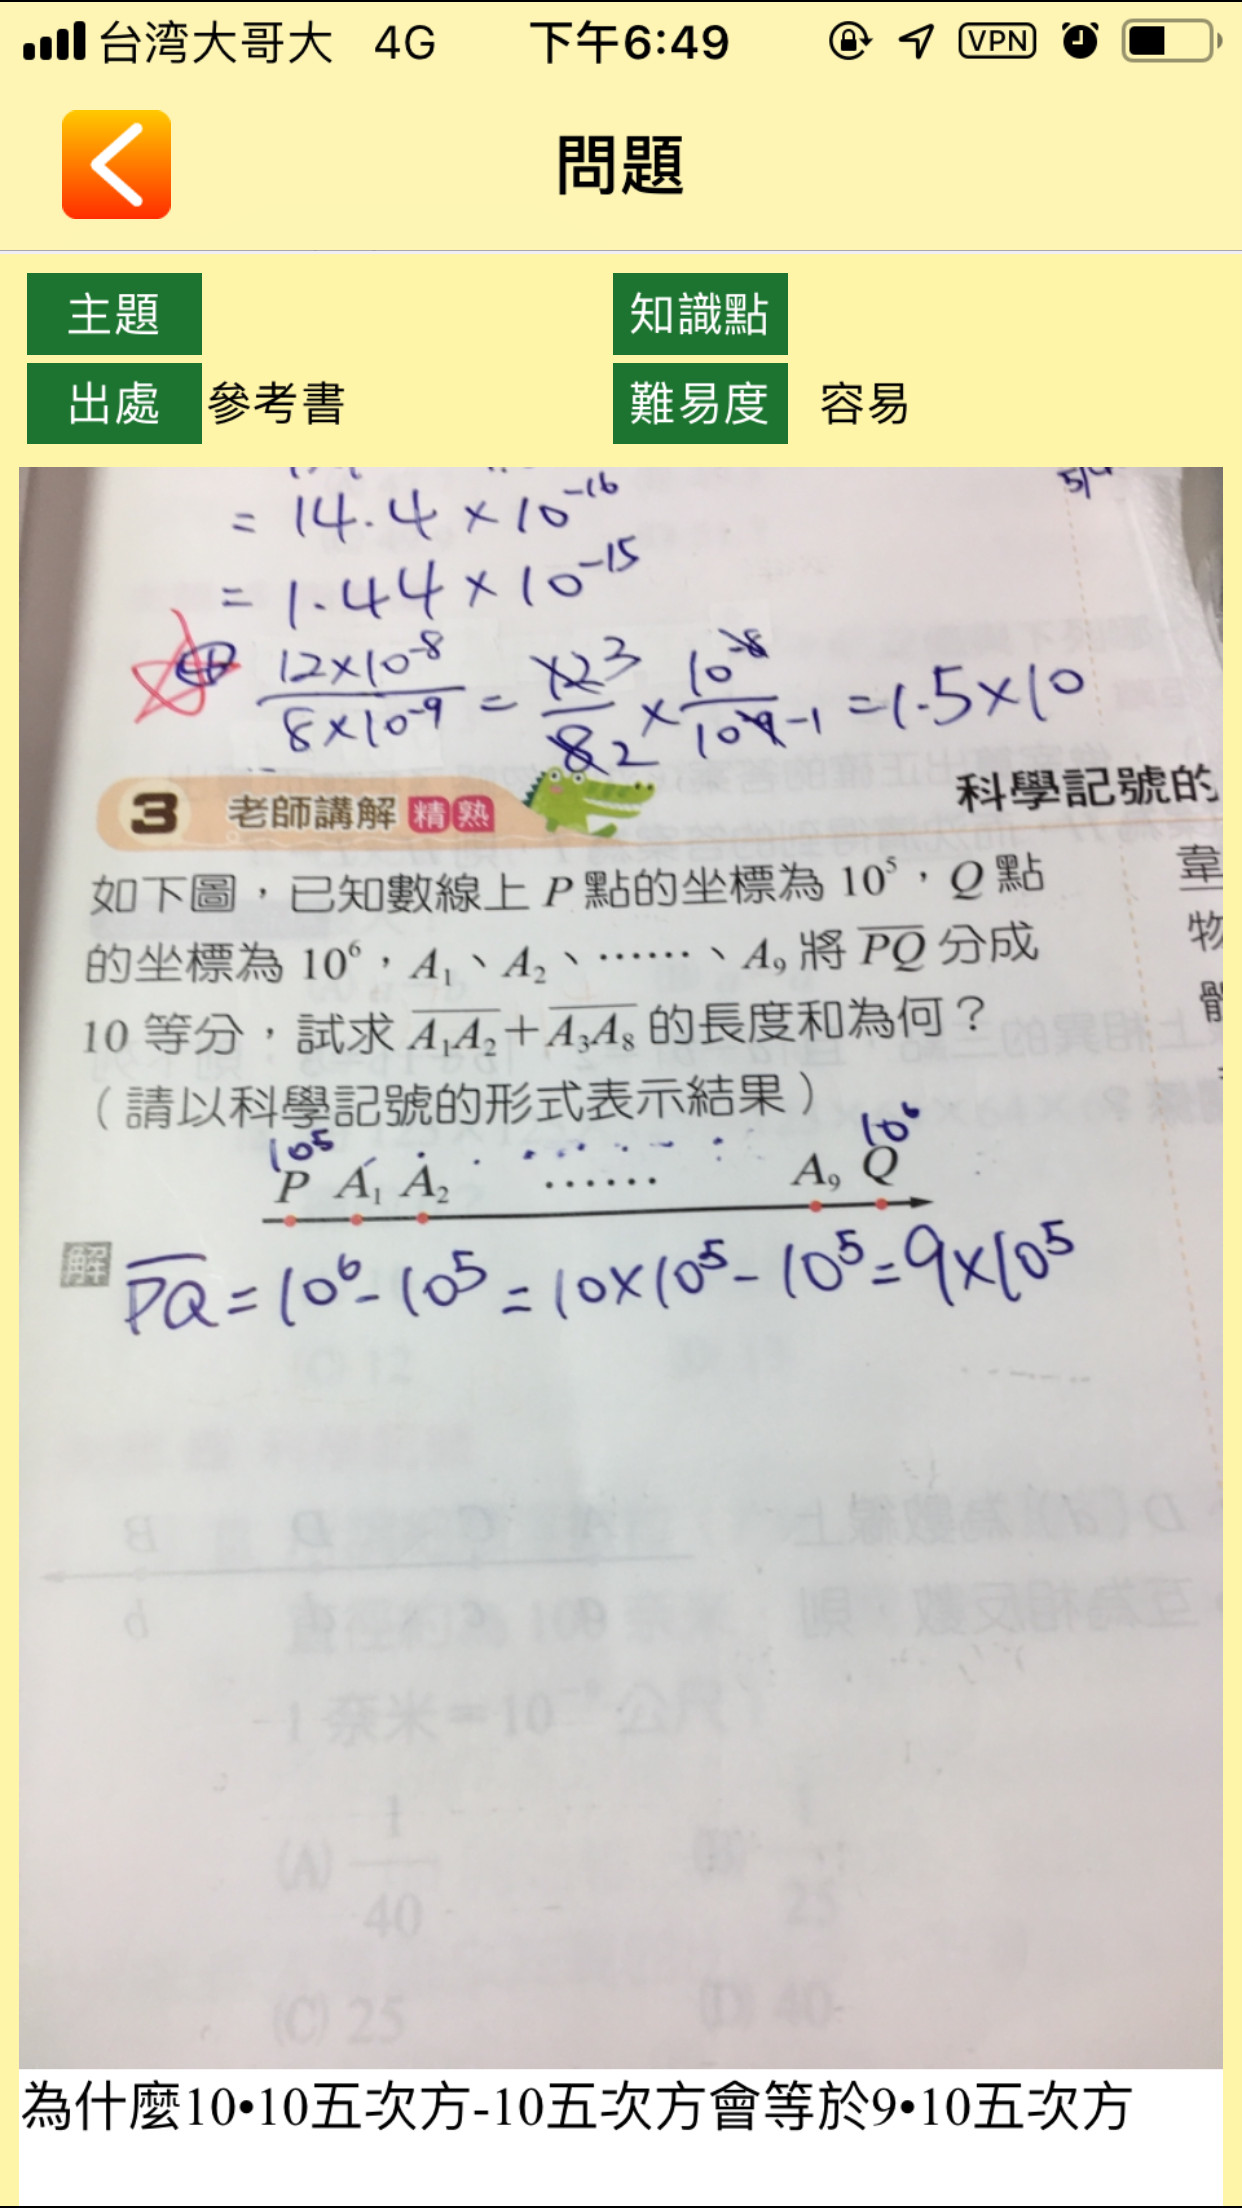 台湾大哥大 4G 下午6:49 VPN
問題
主題 知識點
出處 參考書 難易度 容易
= 14.4 × 10⁻¹⁶
= 1.44 × 10⁻¹⁵
(4) 12×10⁻⁸ / 8×10⁻⁹ = 12 3 / 8 2 × 10⁻⁸ / 10⁻⁹ -1 = 1.5×10
3 老師講解 精 熟
科學記號的
如下圖,已知數線上 P 點的坐標為 10⁵,Q 點
的坐標為 10⁶,A₁、A₂、⋯⋯、A₉ 將 P̅Q̅ 分成
10 等分,試求 A̅₁A̅₂+A̅₃A̅₈ 的長度和為何?
(請以科學記號的形式表示結果)
韋
物
10⁵ 10⁶
P A₁ A₂ ⋯⋯ A₉ Q
解 P̅Q̅ = 10⁶ - 10⁵ = 10×10⁵ - 10⁵ = 9×10⁵
1 奈米=10⁻⁹ 公尺
(A) 1/40 (B) 1/25
(C) 25 (D) 40
為什麼10•10五次方-10五次方會等於9•10五次方